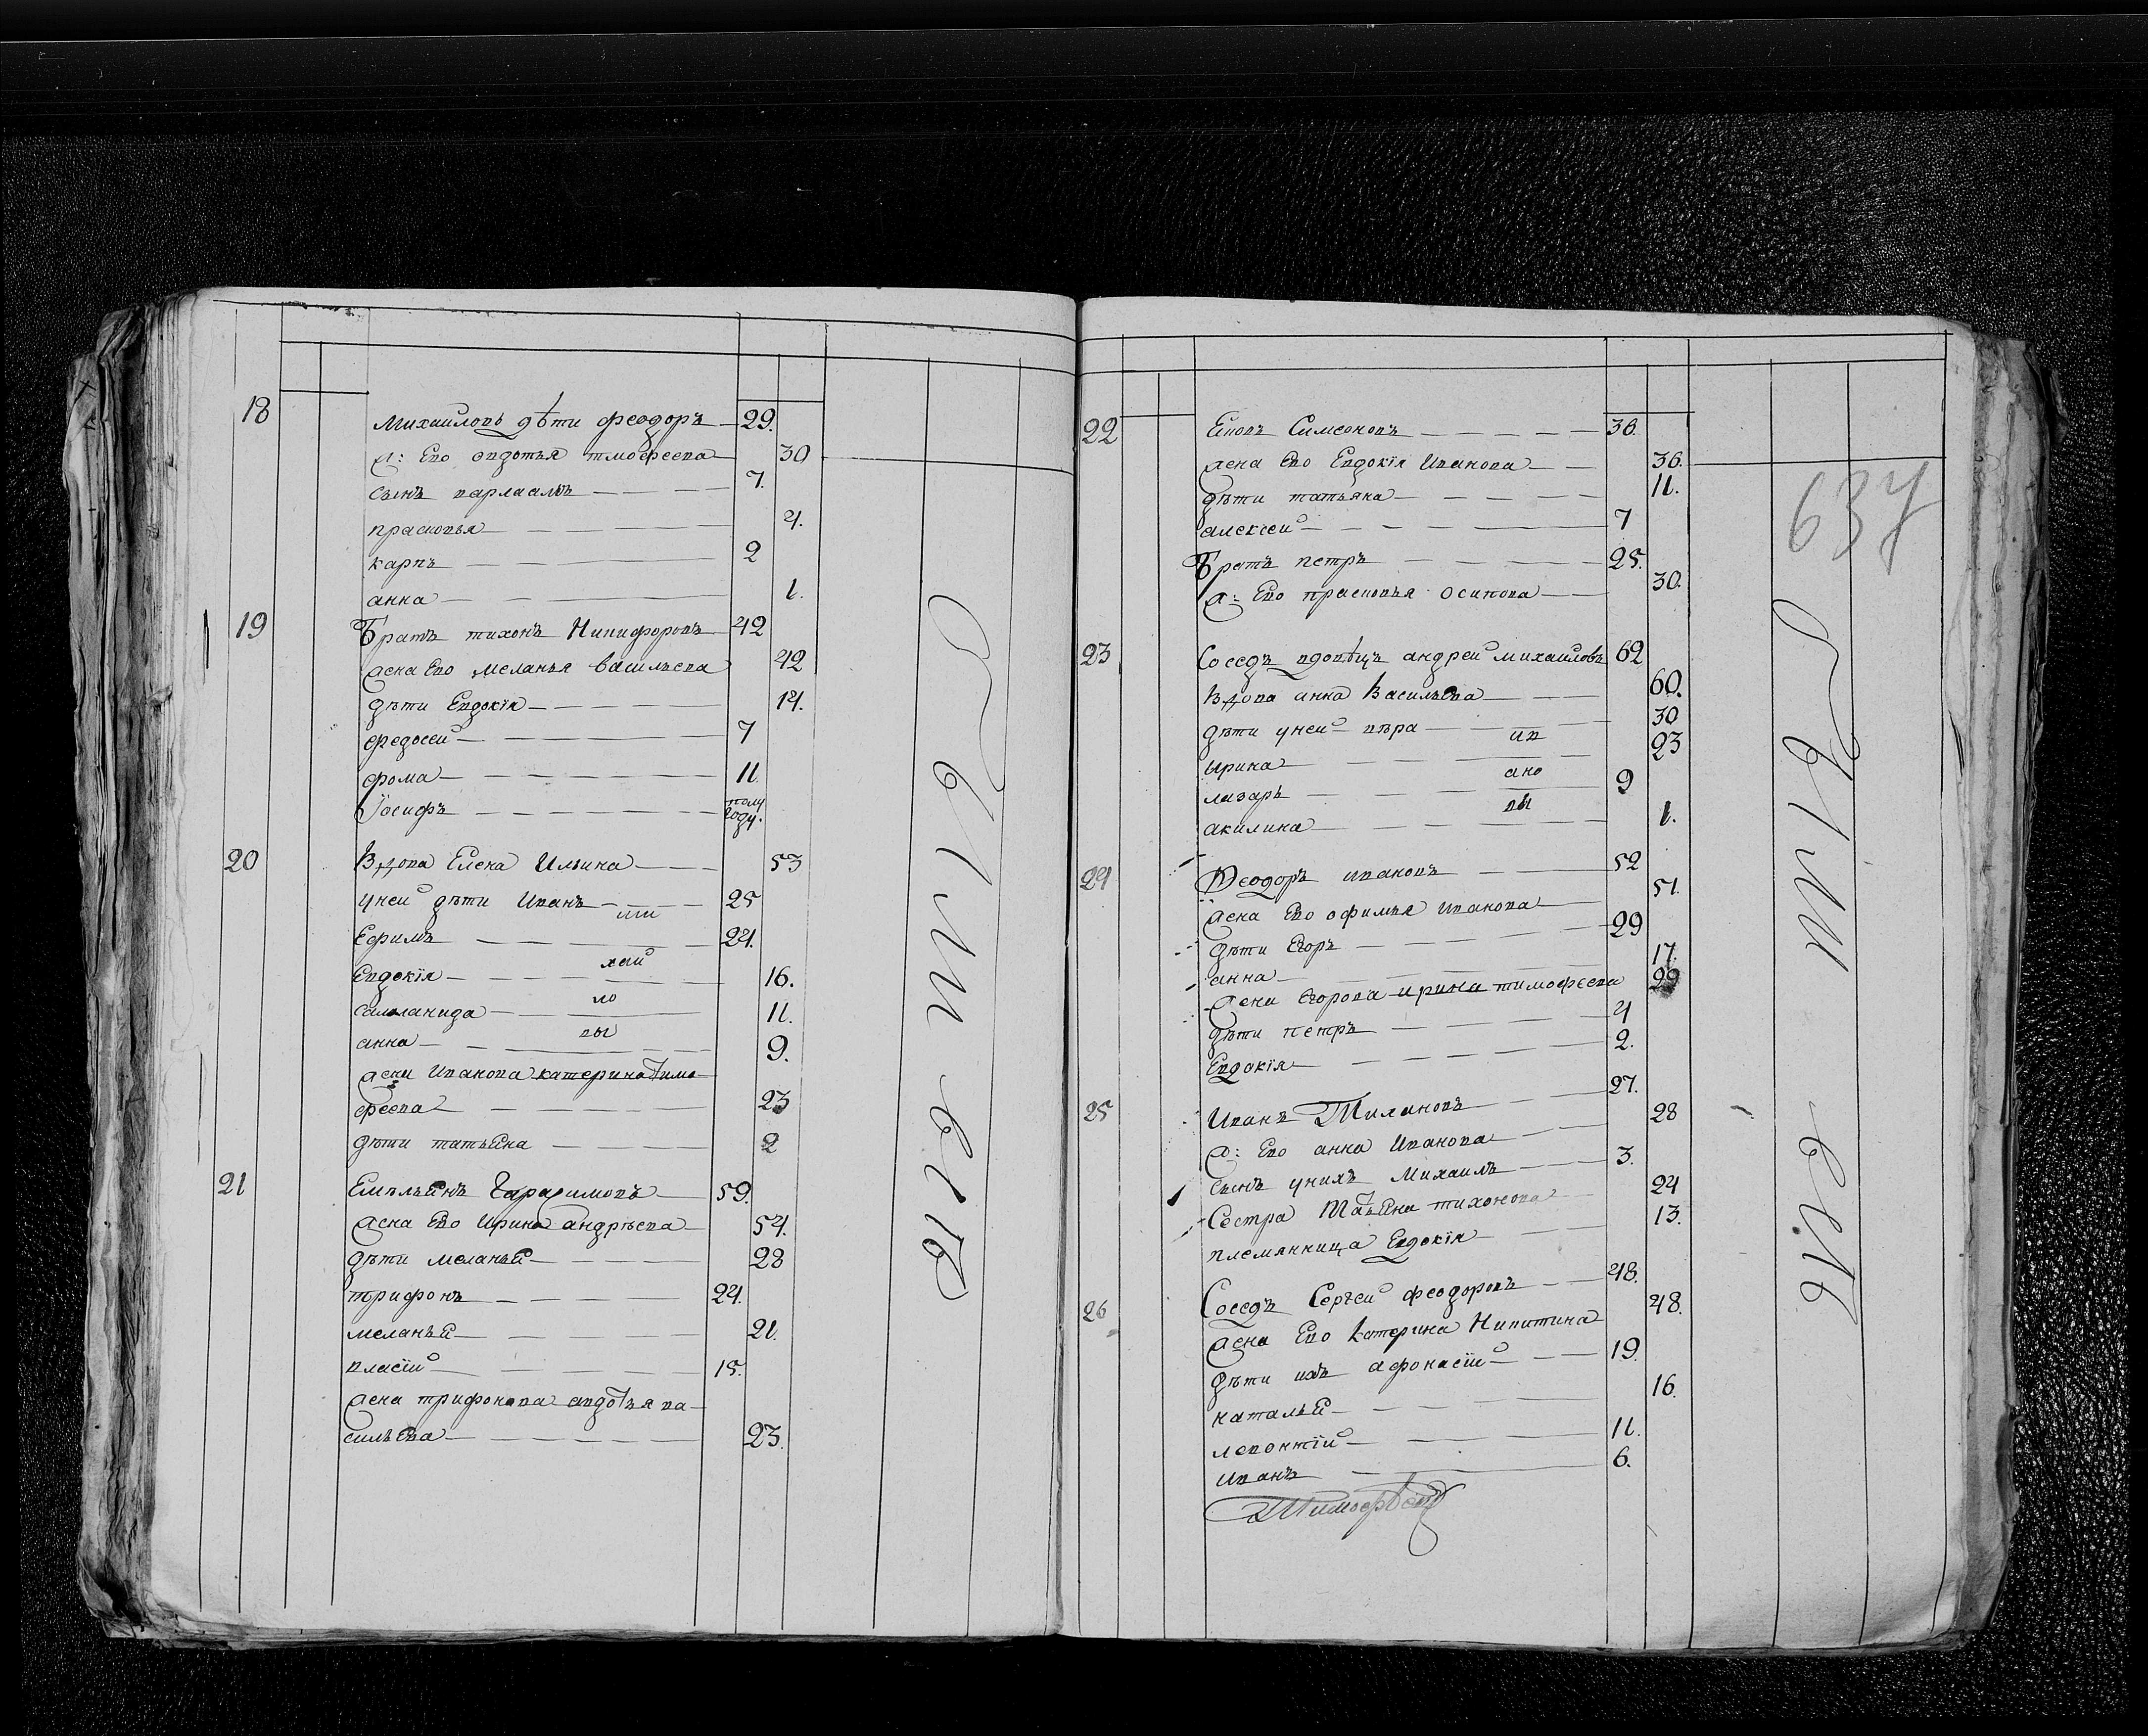 18 Михаиловъ дѣти феодоръ 29.
ж: Ево овдотья тмофеева 30
сынъ варлаамъ 7.
прасковья 4.
карпъ 2
анна 1.
19 Братъ тихонъ Никифоровъ 42
жена Ево меланья васильева 42
дѣти Евдокія 14.
федосей 7
фома 11.
Іосифъ полу году.
20 Вдова Елена Ильина 53
унеи дѣти Иванъ 25
ми
Ефимъ 24.
хаи
Евдокія 16.
ло
Саламанида 11.
вы
анна 9.
жена Иванова катерина тимо
феева 23
дѣти татьяна 2
21 Емельянъ Гарасимовъ 59.
жена Ево Ирина андрѣева 54.
дѣти меланья 28
трифонъ 24.
меланья 21.
власій 15.
жена трифонова авдотья ва
сильева 23.
были
637
22 Яковъ Симеоновъ 36.
жена Ево Евдокія Иванова 36.
дѣти татьяна 11.
алексеи 7
Братъ петръ 25.
ж: Ево прасковья осипова 30.
23 Соседъ вдовѣцъ андреи михаиловъ 62
Вдова анна Васильева 60.
дѣти унеи вѣра 30
ив
Ирина 23
ано
лазарь 9
вы
акилина 1.
24 Феодоръ ивановъ 52
жена Ево офимья Иванова 51.
дѣти Егоръ 29
анна 17.
жена Егорова ирина тимофеева 29
дѣти петръ 4
Евдокія 2.
25 Иванъ Тихановъ 27.
ж: Ево анна Иванова 28
сынъ унихъ Михаилъ 3.
Сестра Татьяна тихонова 24
племянница Евдокія 13.
26 Соседъ Сергеи феодоровъ 48.
жена Ево Катерина Никитина 48.
дѣти ихъ афонасій 19.
наталья 16.
леонтій 11.
иванъ 6.
были